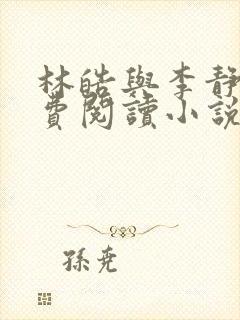 林皓與李靜
費閱讀小說
孫堯